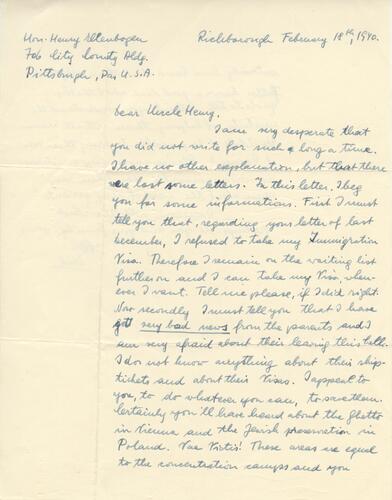 Hon. Henry Ellenbogen
706 City County Bldg.
Pittsburgh, Pa, U.S.A.
Richborough February 18th, 1940.
dear Uncle Henry,
I am very desperate that
you did not write for such a long a time.
I have no other explanation, but that there
were lost some letters. In this letter, I beg
you for some informations. First I must
tell you that, regarding yours letter of last
december, I refused to take my Immigration
Visa. Therefore I remain on the waiting list
furtheron and I can take my Visa, when-
ever I want. Tell me please, if I did right.
Now secondly I must tell you that I have
got very bad news from the parents and I
am very afraid about their leaving this
I do not know anything about their ship-
tickets and about their Visas. I appeal to
you, to do whatever you can, to save them.
Certainly you'll have heard about the Ghetto
in Vienna and the Jewish preservation in
Poland. Vae Victis! These areas are equal
to the concentration camps and you